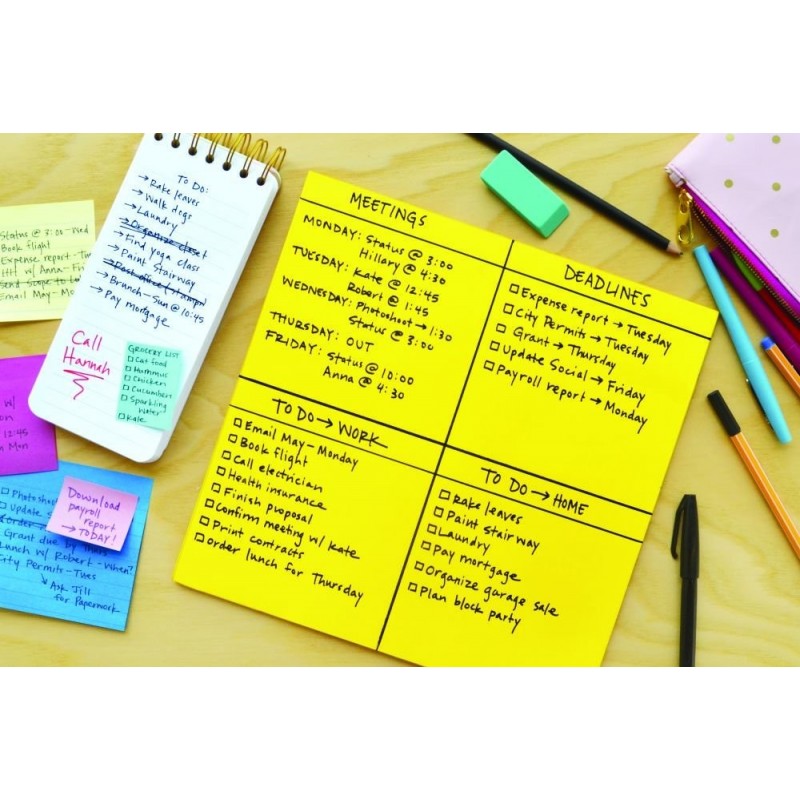 To Do:
→ Rake leaves
→ Walk dogs
→ Laundry
→ Organize closet
→ Find yoga class
→ Paint Stairway
→ Post office (stamps)
→ Brunch – Sun @ 10:45
→ Pay mortgage
Call
Hannah
GROCERY LIST
□ Cat food
□ Hummus
□ Chicken
□ Cucumbers
□ Sparkling
Water
□ Kale
Status @ 3:00 - Wed
Book flight
Expense report - Tu
w/ Anna - Fri
Send scope to
Email May - Mo
w/
12:45
Mon
□ Photoshoo
□ Update S
□ Order
Grant due by Thurs
Lunch w/ Robert - When?
City Permits - Tues
Ask Jill
for Paperwork
Download
payroll
report
→ TODAY!
MEETINGS
MONDAY: Status @ 3:00
Hillary @ 4:30
TUESDAY: Kate @ 12:45
Robert @ 1:45
WEDNESDAY: Photoshoot → 1:30
Status @ 3:00
THURSDAY: OUT
FRIDAY: Status @ 10:00
Anna @ 4:30
DEADLINES
□ Expense report → Tuesday
□ City Permits → Tuesday
□ Grant → Thursday
□ Update Social → Friday
□ Payroll report → Monday
TO DO → WORK
□ Email May – Monday
□ Book flight
□ Call electrician
□ Health insurance
□ Finish proposal
□ Confirm meeting w/ Kate
□ Print contracts
□ Order lunch for Thursday
TO DO → HOME
□ Rake leaves
□ Paint Stairway
□ Laundry
□ Pay mortgage
□ Organize garage sale
□ Plan block party